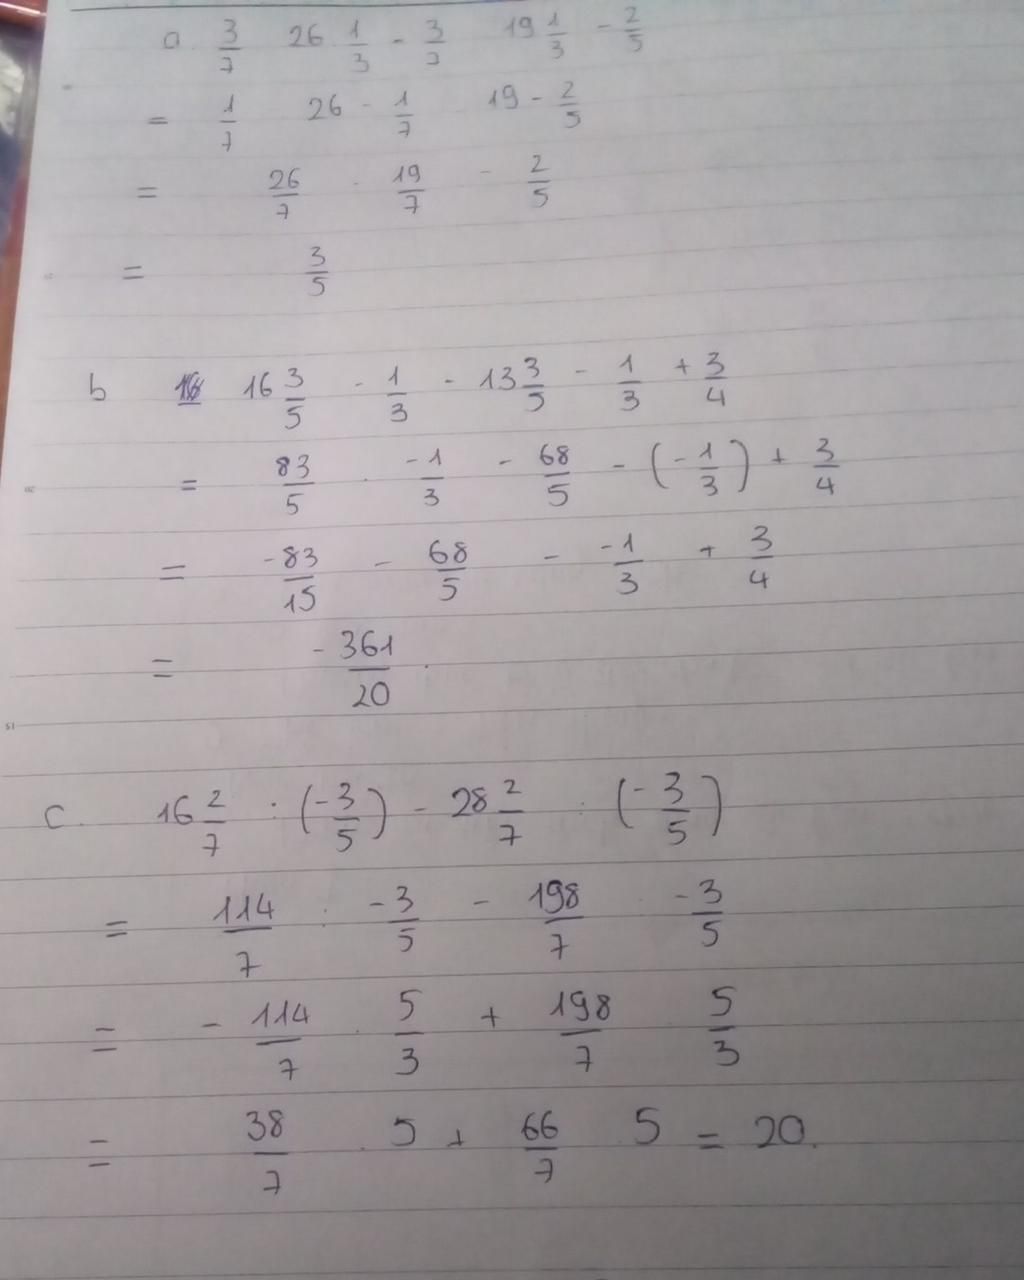 a. 3/7 26 1/3 - 3/7 19 1/3 - 2/5
= 1/7 26 - 1/7 19 - 2/5
= 26/7 - 19/7 - 2/5
= 3/5
b 16 3/5 · -1/3 - 13 3/5 - 1/3 + 3/4
= 83/5 · -1/3 - 68/5 - (-1/3) + 3/4
= -83/15 - 68/5 - -1/3 + 3/4
= -361/20
c. 16 2/7 : (-3/5) - 28 2/7 : (-3/5)
= 114/7 : -3/5 - 198/7 -3/5
= - 114/7 · 5/3 + 198/7 5/3
= 38/7 · 5 + 66/7 5 = 20.